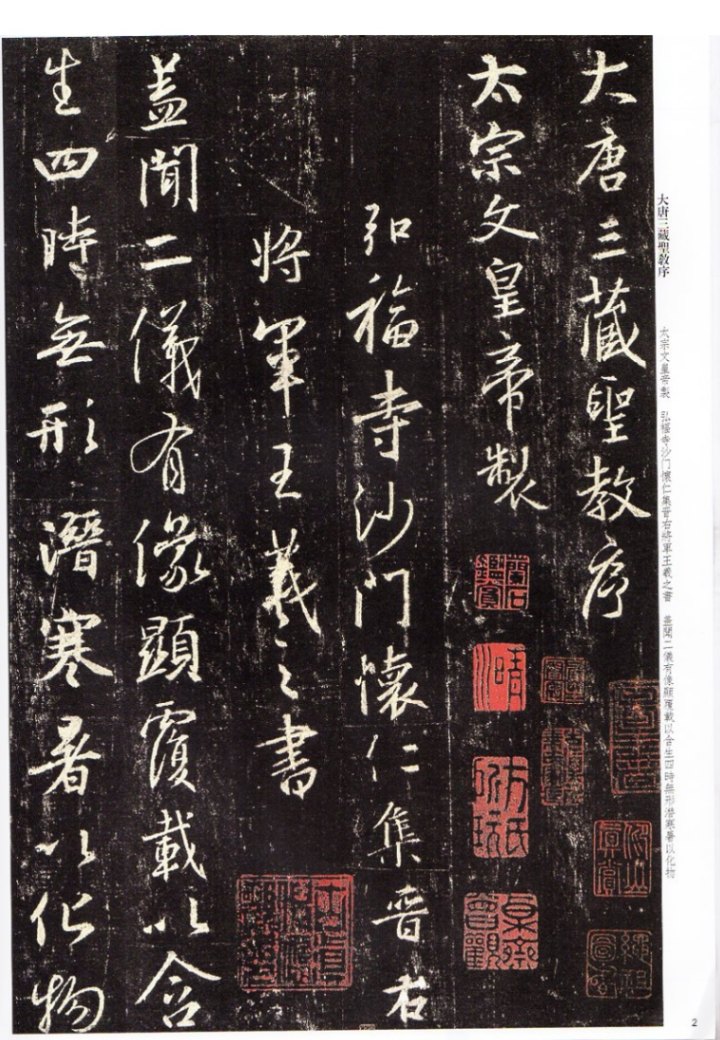 大唐三藏聖教序
太宗文皇帝製
弘福寺沙門懷仁集晉右
將軍王羲之書
蓋聞二儀有像顯覆載以含
生四時無形潛寒暑以化物
大唐三藏聖教序
太宗文皇帝製 弘福寺沙门懷仁集晉右將軍王羲之書 蓋聞二儀有像顯覆載以含生四時無形潜寒暑以化物
2